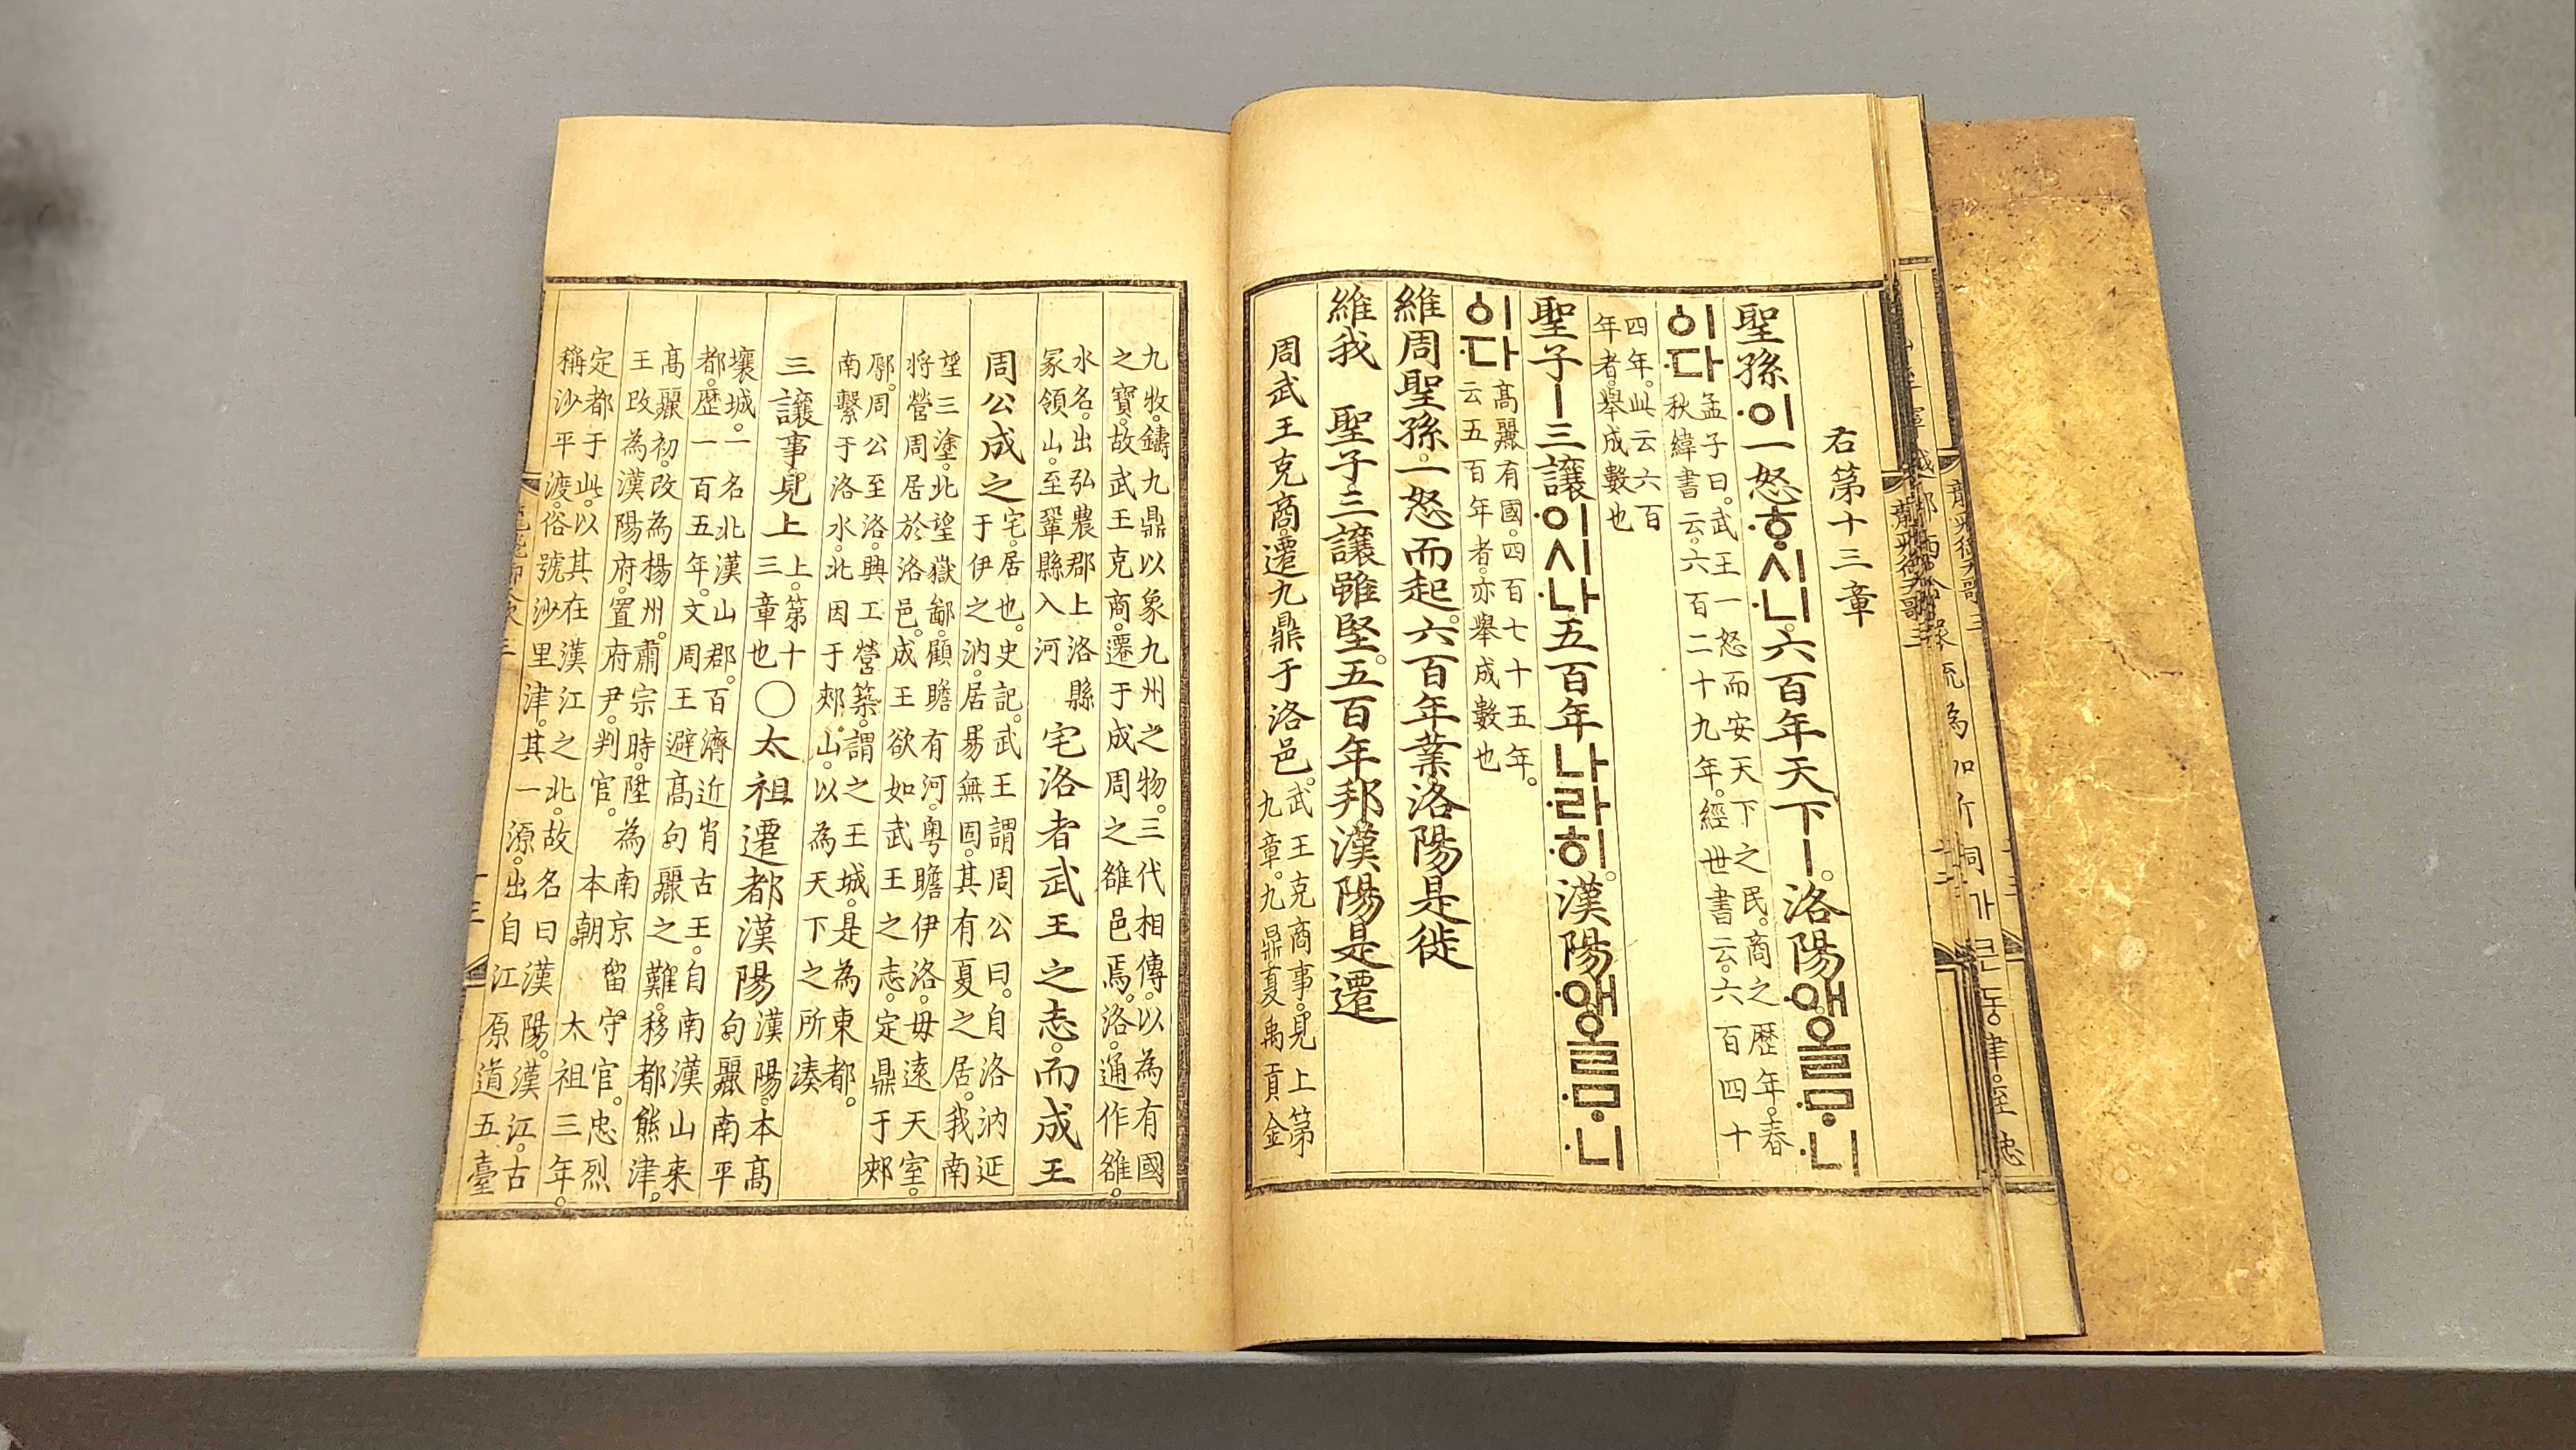 右第十三章
聖孫이一怒ᄒᆞ시니。六百年天下ㅣ。洛陽애올ᄆᆞ니
이다
孟子曰。武王一怒而安天下之民。商之歷年。春
秋緯書云。六百二十九年。經世書云。六百四十
四年。此云六百
年者。擧成數也
聖子ㅣ三讓이시나五百年나라히。漢陽애올ᄆᆞ니
이다
高麗有國。四百七十五年。
云五百年者。亦擧成數也
維周聖孫。一怒而起。六百年業。洛陽是徙
維我 聖子。三讓雖堅。五百年邦。漢陽是遷
周武王克商。遷九鼎于洛邑。
武王克商事。見上第
九章。九鼎夏禹貢金
九牧。鑄九鼎以象九州之物。三代相傳。以為有國
之寶。故武王克商。遷于成周之雒邑焉。洛。通作雒。
水名。出弘農郡上洛縣
冢領山。至鞏縣入河
宅洛者武王之志。而成王
周公成之
宅。居也。史記。武王謂周公曰。自洛汭延
于伊之汭。居昜無固。其有夏之居。我南
望三塗。北望嶽鄙。顧瞻有河。粤瞻伊洛。毋遠天室。
將營周居於洛邑。成王欲如武王之志。定鼎于郟
鄏。周公至洛。興工營築。謂之王城。是為東都。
南繫于洛水。北因于郟山。以為天下之所湊
三讓事見上
上。第十
三章也
○太祖遷都漢陽
漢陽。本高
句麗南平
壤城。一名北漢山郡。百濟近肖古王。自南漢山来
都。歷一百五年。文周王避高句麗之難。移都熊津。
高麗初。改為楊州。肅宗時。陞為南京留守官。忠烈
王改為漢陽府。置府尹。判官。 本朝 太祖三年。
定都于此。以其在漢江之北。故名曰漢陽。漢江。古
稱沙平渡。俗號沙里津。其一源。出自江原道五臺